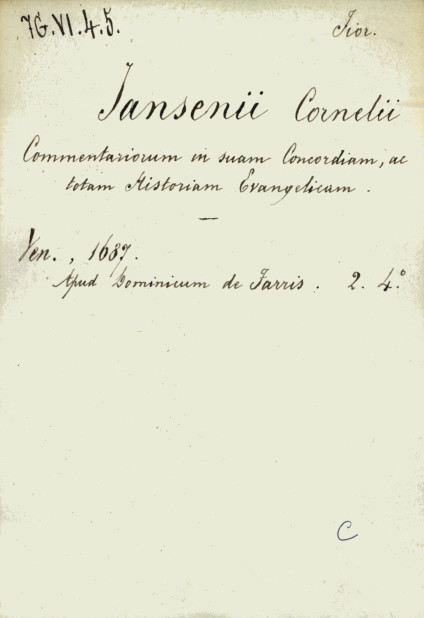 7G.VI.4.5. Fior.
Jansenii Cornelii
Commentariorum in suam Concordiam, ac
totam Historiam Evangelicam.
Ven., 1687.
Apud Dominicum de Farris. 2. 4.°
C